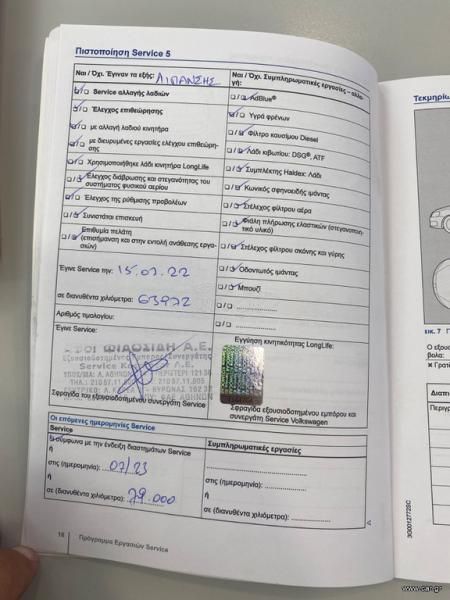 Πιστοποίηση Service 5
Ναι / Όχι. Έγιναν τα εξής: ΛΙΠΑΝΣΗΣ
Ναι / Όχι. Συμπληρωματικές εργασίες – αλλα-
γή:
Service αλλαγής λαδιών
AdBlue®
Έλεγχος επιθεώρησης
Υγρά φρένων
με αλλαγή λαδιού κινητήρα
Φίλτρο καυσίμου Diesel
με διευρυμένες εργασίες ελέγχου επιθεώρη-
σης
Λάδι κιβωτίου: DSG®, ATF
Χρησιμοποιήθηκε λάδι κινητήρα LongLife
Συμπλέκτης Haldex: Λάδι
Έλεγχος διάβρωσης και στεγανότητας του
συστήματος φυσικού αερίου
Κωνικός σφηνοειδής ιμάντας
Έλεγχος της ρύθμισης προβολέων
Στέλεχος φίλτρου αέρα
Συνιστάται επισκευή
Φιάλη πλήρωσης ελαστικών (στεγανοποιη-
τικό υλικό)
Επιθυμία πελάτη
(επισήμανση και στην εντολή ανάθεσης εργα-
σιών)
Στέλεχος φίλτρου σκόνης και γύρης
Έγινε Service την: 15.07.22
Οδοντωτός ιμάντας
Μπουζί
σε διανυθέντα χιλιόμετρα: 63972
Αριθμός τιμολογίου:
Έγινε Service:
Εγγύηση κινητικότητας LongLife:
ΑΦΟΙ ΦΙΛΟΣΙΔΗ Α.Ε.
Σφραγίδα του εξουσιοδοτημένου συνεργάτη Service
Σφραγίδα εξουσιοδοτημένου εμπόρου και
συνεργάτη Service Volkswagen
Οι επόμενες ημερομηνίες Service
Service
Συμπληρωματικές εργασίες
σύμφωνα με την ένδειξη διαστημάτων Service
ή
στις (ημερομηνία): 07/23
στις (ημερομηνία):
ή
ή
σε (διανυθέντα χιλιόμετρα): 79.000
σε (διανυθέντα χιλιόμετρα):
16 Πρόγραμμα Εργασιών Service
Τεκμηρίω
εικ. 7
3G0012772SC
www.car.gr